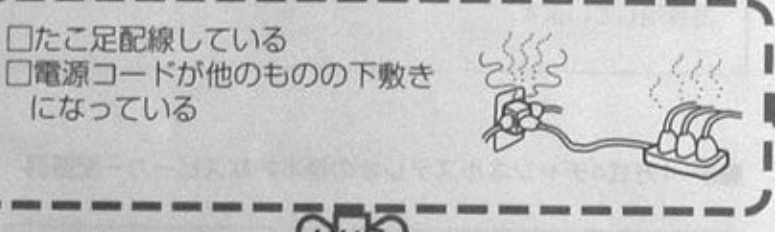 □たこ足配線している
□電源コードが他のものの下敷き
になっている